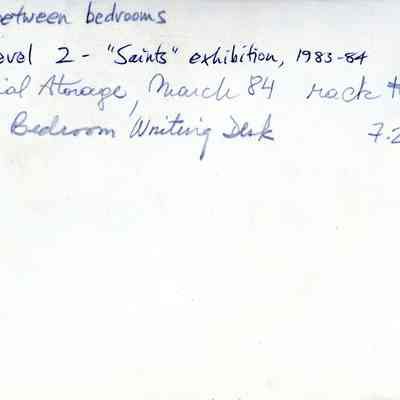 etween bedrooms
evel 2 - "Saints" exhibition, 1983-84
ial Storage, March 84 rack #
Bedroom Writing Desk 7.2